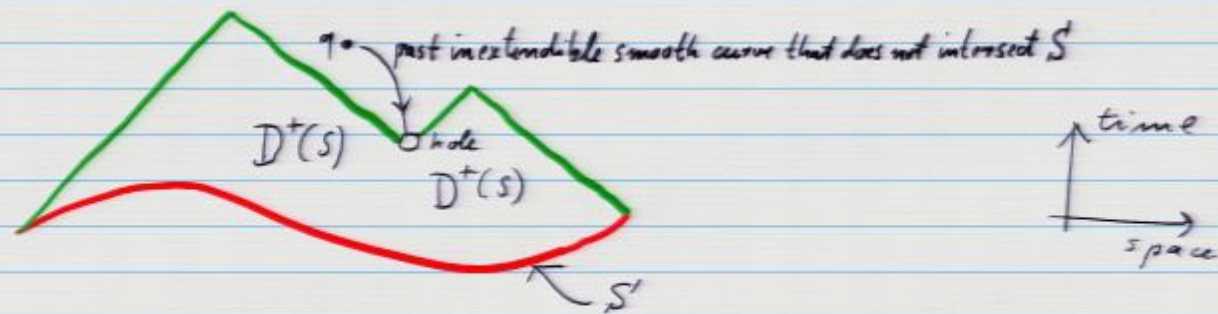 q. past inextendible smooth curve that does not intersect S
D⁺(S) hole
D⁺(S)
time
space
S